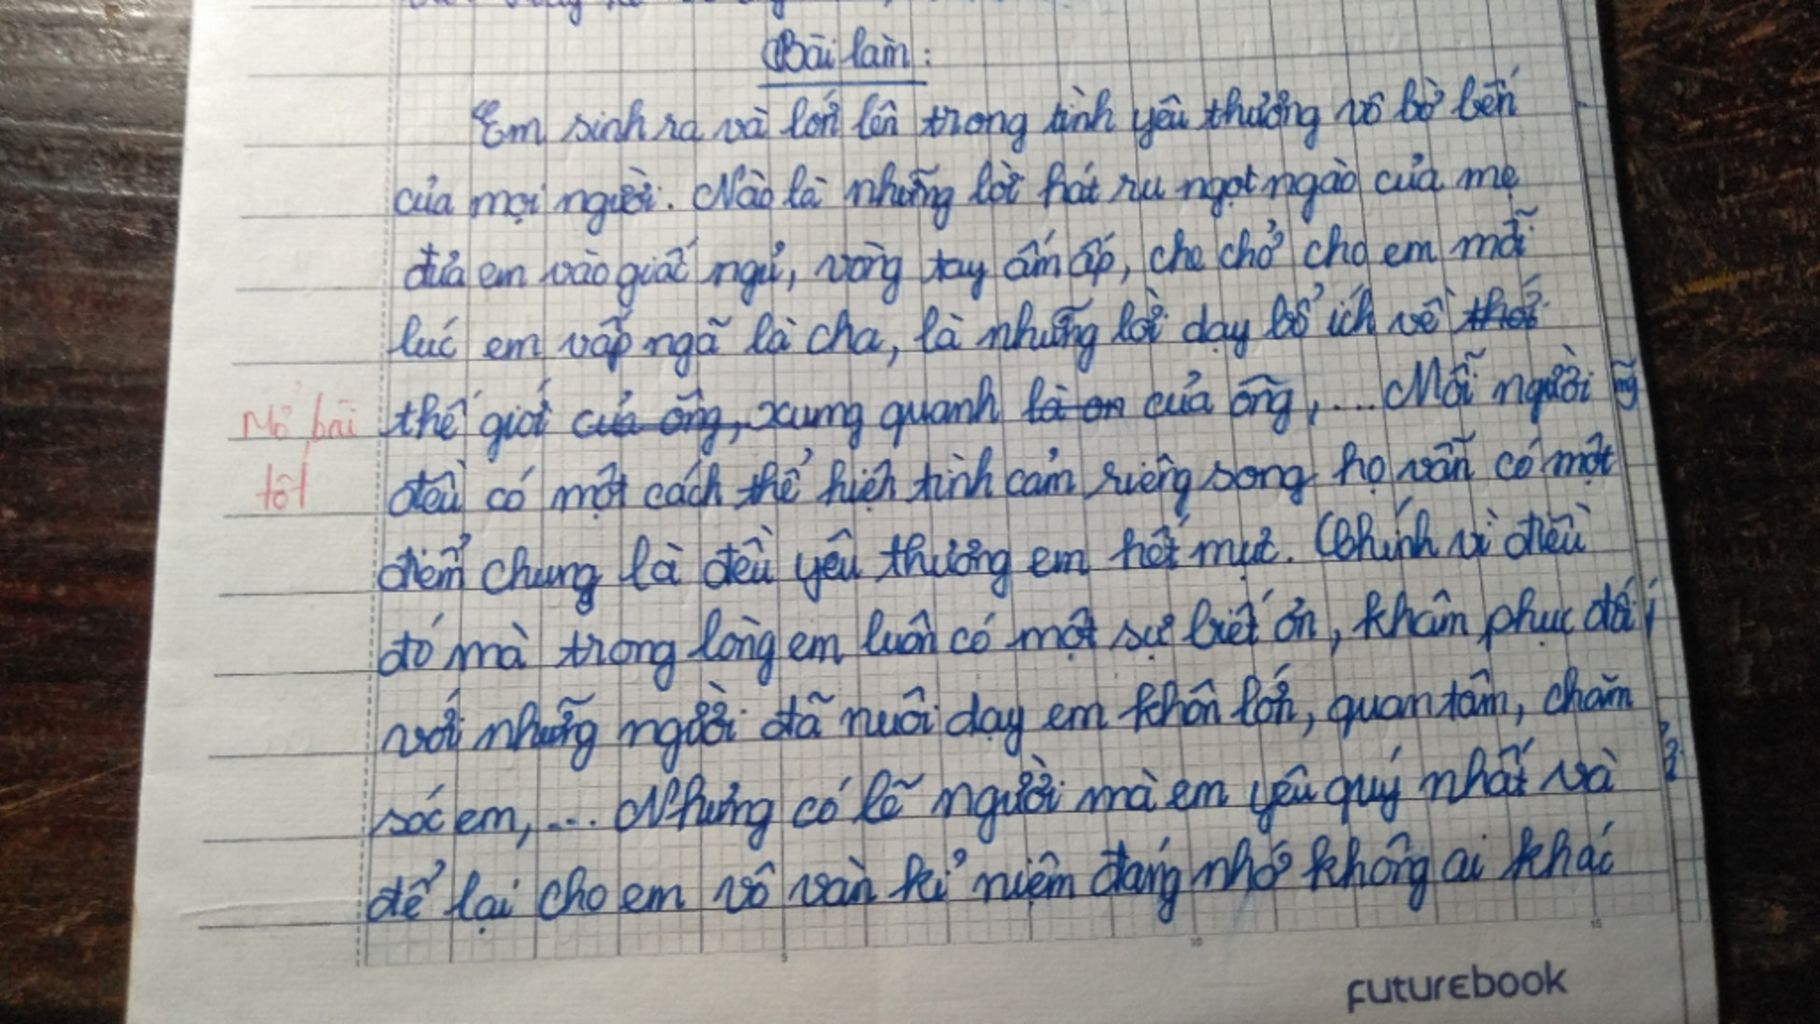 Bài làm:
Em sinh ra và lớn lên trong tình yêu thương vô bờ bến
của mọi người. Nào là những lời hát ru ngọt ngào của mẹ
đưa em vào giấc ngủ, vòng tay ấm áp, che chở cho em mỗi
lúc em vấp ngã là cha, là những lời dạy bổ ích về
Mở bài thế giới của ông, xung quanh là ôn của ông,... Mỗi người
tốt đều có một cách thể hiện tình cảm riêng song họ vẫn có một
điểm chung là đều yêu thương em hết mực. Chính vì điều
đó mà trong lòng em luôn có một sự biết ơn, khâm phục đối
với những người đã nuôi dạy em khôn lớn, quan tâm, chăm
sóc em,... Nhưng có lẽ người mà em yêu quý nhất và
để lại cho em vô vàn kỉ niệm đáng nhớ không ai khác
5 10 15
FUTUREBOOK